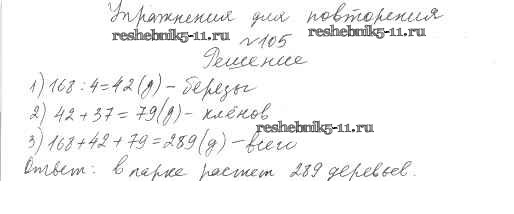 Упражнения для повторения
reshebnik5-11.ru reshebnik5-11.ru
№105
Решение
1) 168 : 4 = 42 (д) – берёзы
2) 42 + 37 = 79 (д) – клёнов
3) 168 + 42 + 79 = 289 (д) – всего
reshebnik5-11.ru
Ответ: в парке растет 289 деревьев.